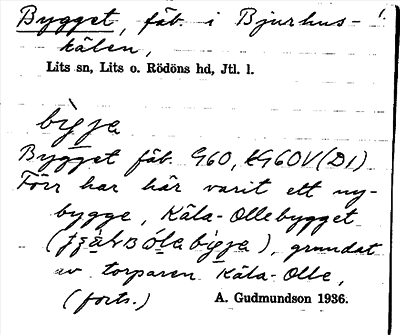 Bygget, fäb. i Bjurhus- 1.
kälen,
Lits sn, Lits o. Rödöns hd, Jtl. l.
bìgja
Bygget fäb. G60, kG60V(D1)
Förr har här varit ett ny-
bygge, Kåla-Ollebygget
grundat
av torparen Kåla-Olle,
(forts.) A. Gudmundson 1936.